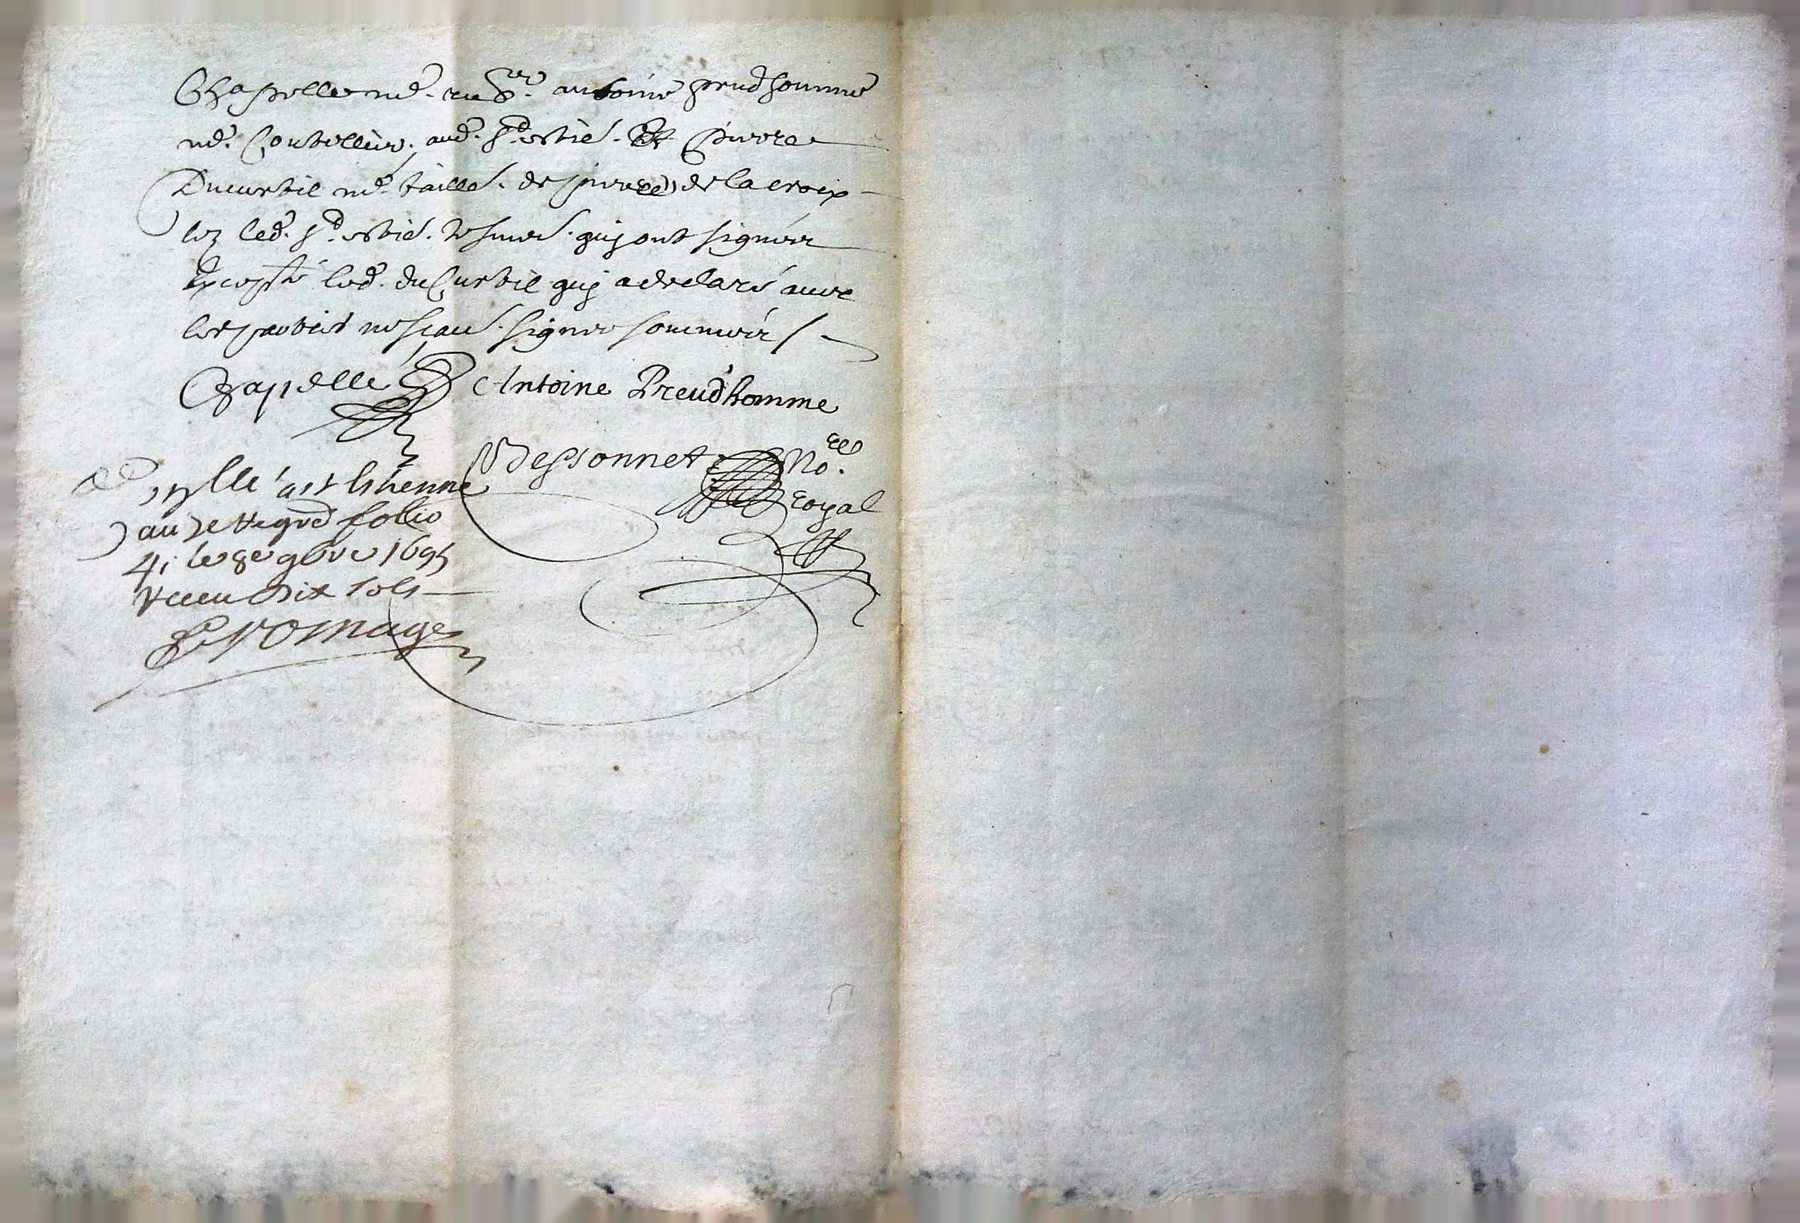 Chapelle md. au Sr. antoine preudhomme
md. Coutellier. aud. St. estie. Et pierre
Ducurtil md. taille. de pierre de la croix
lez led. St. estie. tesmes. quj ont signéz
Excepté led. du Curtil quj a declaré avec
les parties ne scau. signer sommez /
Chapelle Antoine Preudhomme
Dessonnet No.re
royal
st estienne
au Regre follio
41 le 8e 9bre 1695
receu dix sols
fromage